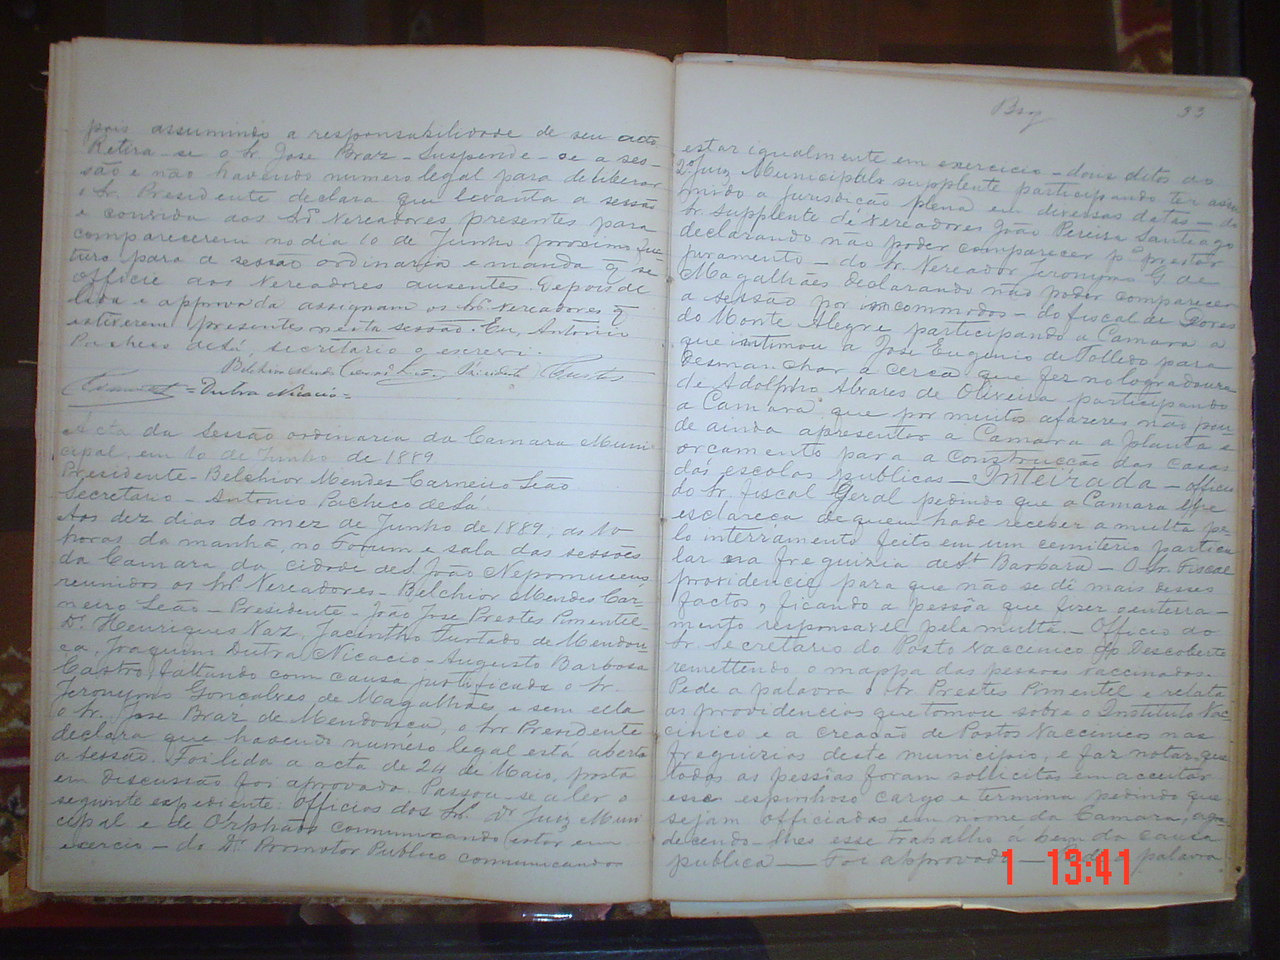 pois assumindo a responsabilidade de seu acto.
Retira-se o Sr. Jose Braz - Suspende-se a ses-
são e não havendo numero legal para deliberar
o Sr. Presidente declara que levanta a sessão
e convida aos Srs. Vereadores presentes para
comparecerem no dia 10 de Junho proximo fu-
turo para a sessão ordinaria e manda q̃ se
officie aos Vereadores ausentes. Depois de
lida e approvada assignam os Srs. Vereadores q̃
estiverem presentes nesta sessão. Eu, Antonio
Pacheco de Sá, secretario q̃ escrevi.
Presidente Castro
Dutra Nicacio
Acta da Sessão ordinaria da Camara Muni-
cipal, em 10 de Junho de 1889
Presidente - Belchior Mendes Carneiro Leão
Secretario - Antonio Pacheco de Sá.
Aos dez dias do mez de Junho de 1889, as 10
horas da manhã, no Forum e sala das sessões
da Camara da cidade de S. João Nepomuceno
reunidos os Srs. Vereadores - Belchior Mendes Car-
neiro Leão - Presidente - João Jose Prestes Pimentel
Dr. Henriques Vaz, Jacintho Furtado de Mendon-
ça, Joaquim Dutra Nicacio - Augusto Barbosa
Castro, faltando com causa justificada o Sr.
Jeronymo Gonçalves de Magalhães e sem ella
o Sr. Jose Braz de Mendonça, o Sr. Presidente
declara que havendo numéro legal está aberta
a sessão. Foi lida a acta de 24 de Maio, posta
em discussão foi aprovada. Passou-se a ler o
seguinte expediente: Officios dos Srs. Dr. Juiz Muni
cipal e de Orphãos communicando estar em
exercio - do Dr. Pormotor Publico comunicando
Braz 33
estar igualmente em exercicio - dous ditos do
2º Juiz Municipal supplente participando ter assu
mido a jurisdicção plena em diversas datas - do
Sr. Supplente de Vereadores João Pereira Santiago
declarando não poder comparecer pª prestar
juramento - do Sr. Vereador Jeronymo G. de
Magalhães declarando não poder comparecer
a sessão por incommodos - do fiscal de Dores
do Monte Alegre participando a Camara a
que intimou a Jose Eugenio de Tolledo para
desmanchar a cerca que fez no logradouro
de Adolpho Alvares de Oliveira participando
a Camara que por muitos afazeres não pou-
de ainda apresentar a Camara a planta e
orçamento para a construcção das casas
das escolas publicas - Inteirada - officio
do Sr. fiscal Geral pedindo que a Camara lhe
esclareça de quem hade receber a multa pe-
lo interramento feito em um cemiterio particu
lar na freguizia de Stª Barbara - O Sr. Fiscal
providencie para que não se dê mais desses
factos, ficando a pessôa que fizer o enterra-
mento responsavel pela multa. - Officio do
Sr. Secretario do Posto Vaccinico do Descoberto
remettendo o mappa das pessoas vaccinados.
Pede a palavra o Sr. Prestes Pimentel e relata
as providencias que tomou sobre o Instituto Vac-
cinico e a creação de Postos Vaccinicos nas
freguizias deste municipio, e faz notar, que
todas as pessôas foram solicitas em acceitar
esse espinhoso cargo e termina pedindo que
sejam officiados em nome da Camara, agra-
decendo-lhes esse trabalho á bem da causa
publica - Foi approvado - Pede a palavra
1 13:41